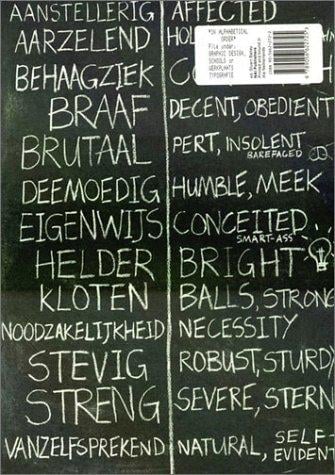 AANSTELLERIG AFFECTED
AARZELEND
"IN ALPHABETICAL
ORDER"
File under:
GRAPHIC DESIGN,
SCHOOLS or
WERKPLAATS
TYPOGRAFIE
BEHAAGZIEK
BRAAF DECENT, OBEDIENT
BRUTAAL PERT, INSOLENT
BAREFACED
DEEMOEDIG HUMBLE, MEEK
EIGENWIJS CONCEITED
SMART-ASS
HELDER BRIGHT
KLOTEN BALLS, STRONG
NOODZAKELIJKHEID NECESSITY
STEVIG ROBUST, STURD
STRENG SEVERE, STERN
VANZELFSPREKEND NATURAL, SELF-
EVIDENT